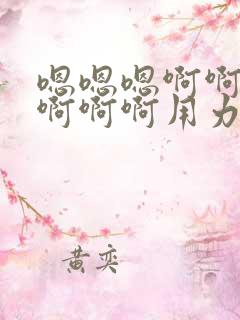 嗯嗯嗯啊啊
啊啊啊用力
黄奕